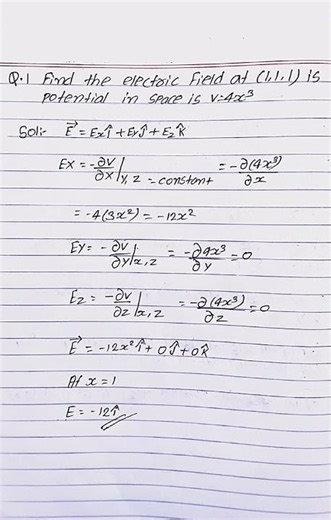 Q.1 Find the electric Field at (1,1,1) is
potential in space is V=4x³
Sol:- E⃗ = Exî + Eyĵ + Ezk̂
Ex = -∂V/∂x |y, z = constant = -∂(4x³)/∂x
= -4(3x²) = -12x²
Ey = -∂V/∂y |x,z = -∂4x³/∂y = 0
Ez = -∂V/∂z |x,z = -∂(4x³)/∂z = 0
E⃗ = -12x²î + 0ĵ + 0k̂
At x = 1
E = -12î